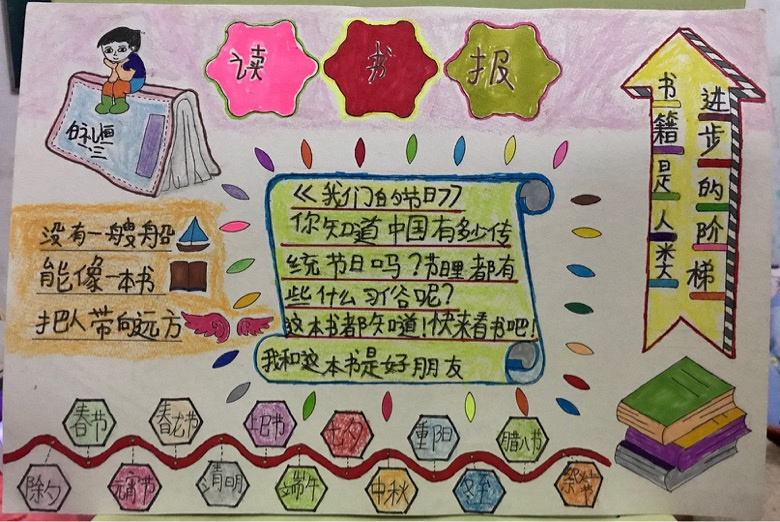 读书报
没有一艘船
能像一本书
把人带向远方
《我们的节日》
你知道中国有多少传
统节日吗？节日里都有
些什么习俗呢？
这本书都知道！快来看书吧！
我和这本书是好朋友
书籍是人类
进步的阶梯
春节
春龙节
七夕
重阳
腊八节
除夕
元宵节
清明
端午
中秋
冬至
祭灶节